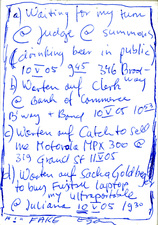 a) Waiting for my turn
@ judge @ summons
(drinking beer in public)
10 V 05 945 346 Broad-
way
b) Warten auf Clerk
@ Bank of Commerce
B'way + Bond 10 V 05 1053
c) Warten auf Catch to sell
me Motorola MPX 300 @
319 Grand St 11 V 05
d) Warten auf Sacha Goldberg
to buy Fujitsu laptop
my ultraportable
@ Juliana 10 V 05 1930
FAKE